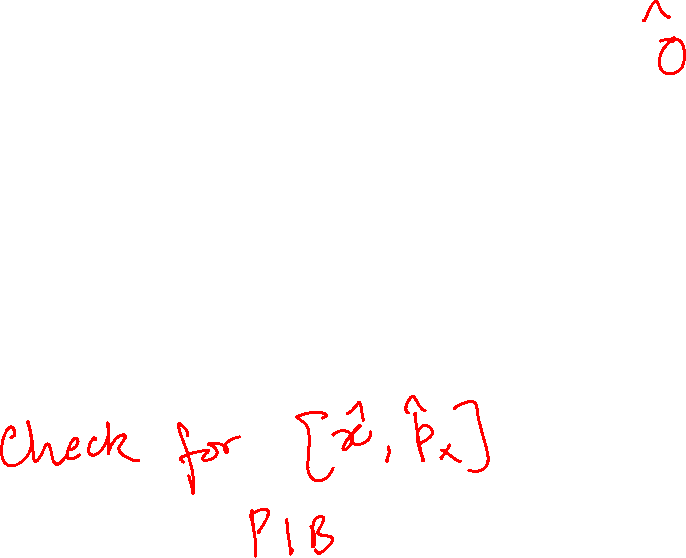 Ô
Check for [x̂, p̂ₓ]
PIB